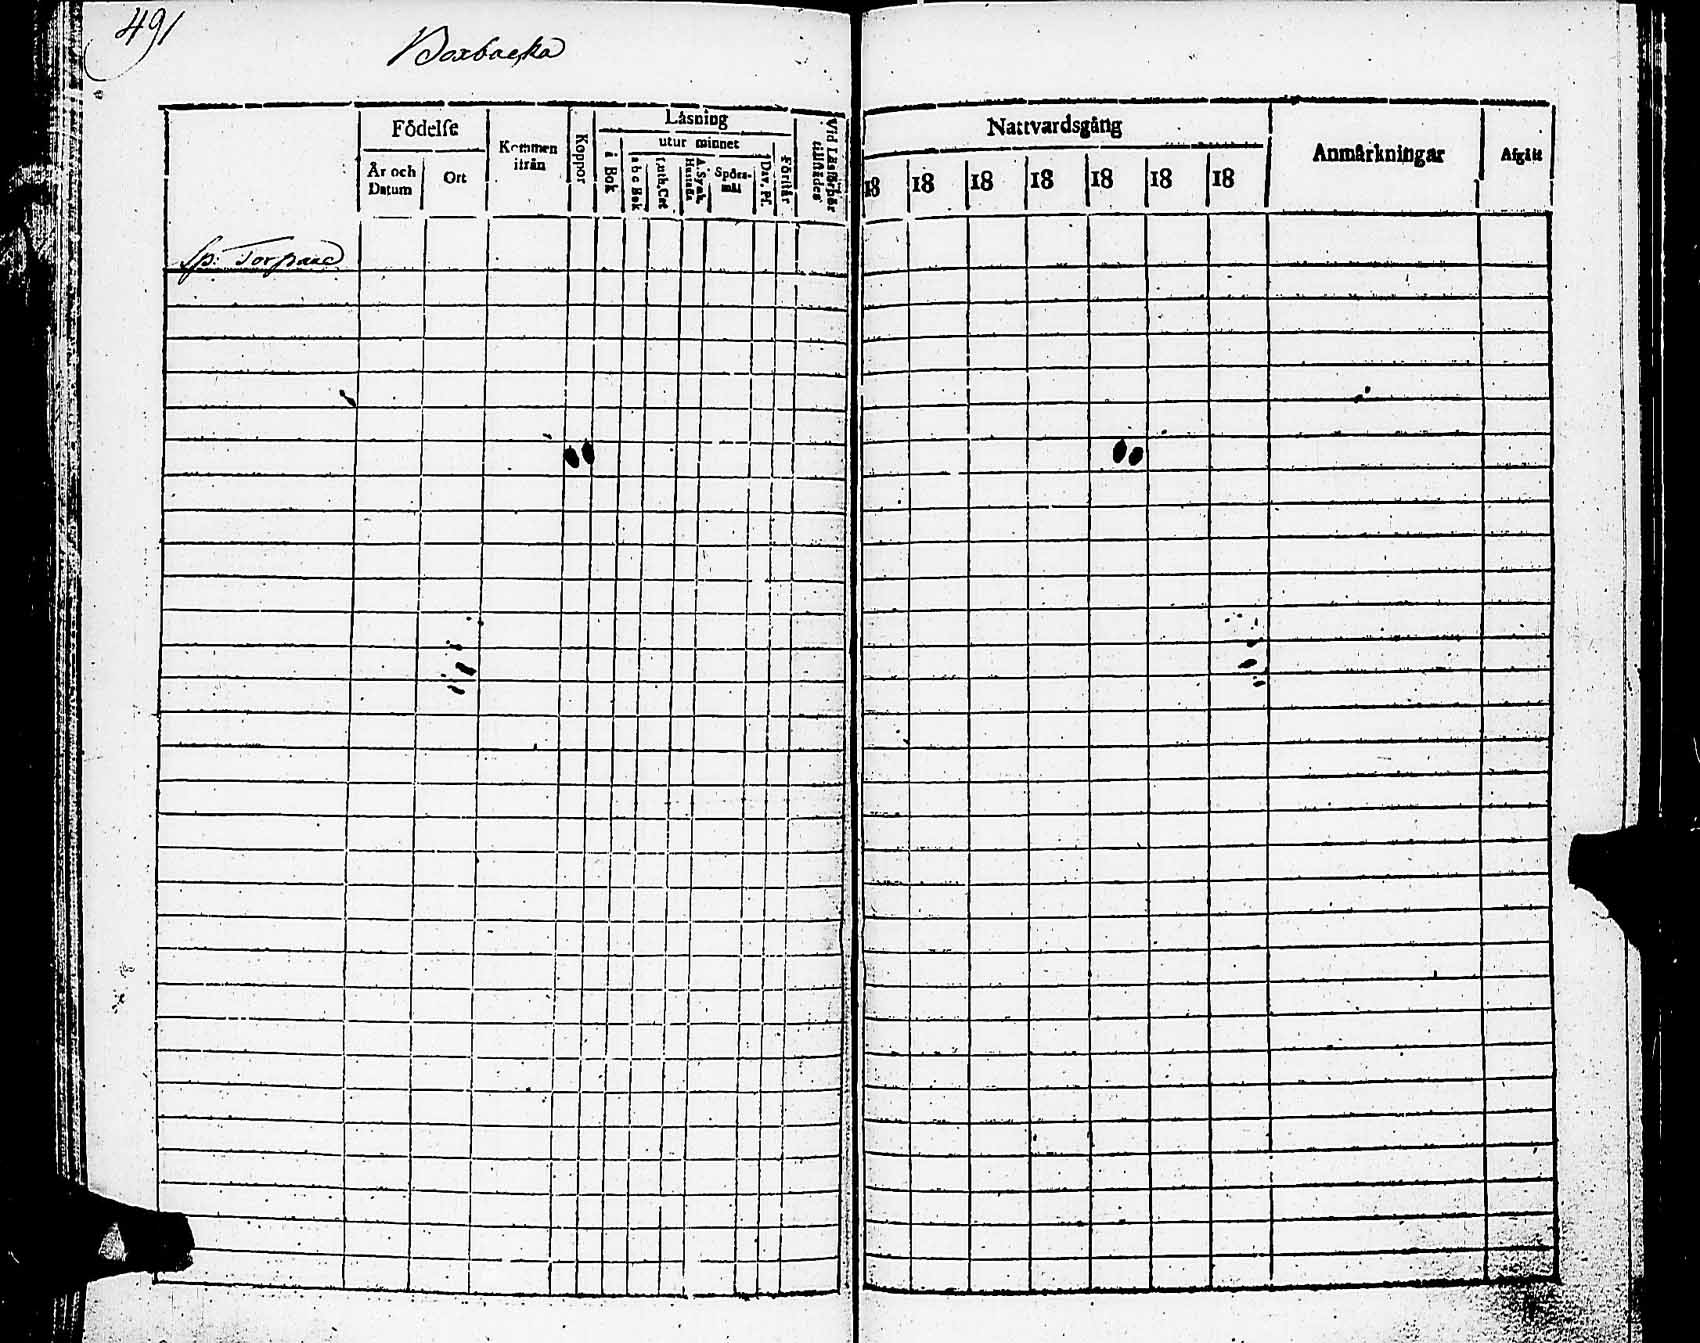 491
Boxbacka
Födelse
Kommen ifrån
Koppor
Läsning
Vid Läsförhör tillstädes
År och Datum
Ort
i Bok
utur minnet
Förstår
a b c Bok
Luth. Cat
A. Symb. Hustafla
Spörs-mål
Dav. Ps.
Nattvardsgång
Anmärkningar
Afgått
18 18 18 18 18 18 18
Sp: Torpare